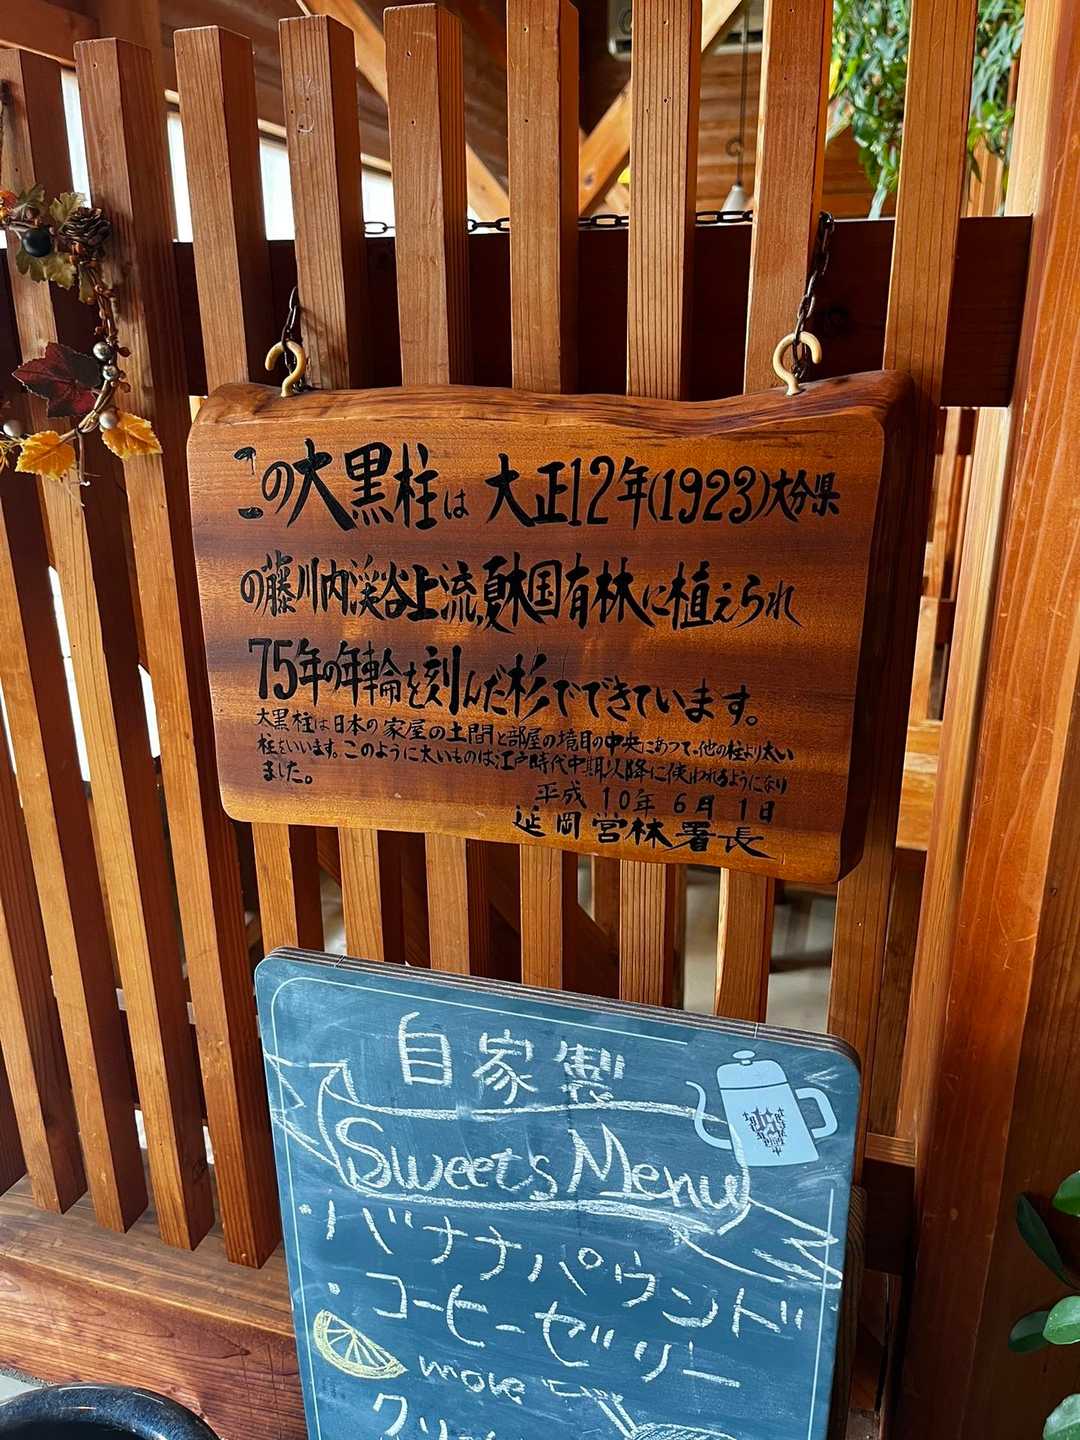 この大黒柱は 大正12年(1923)大分県
の藤川内渓谷上流、夏木国有林に植えられ
75年の年輪を刻んだ杉でできています。
大黒柱は日本の家屋の土間と部屋の境目の中央にあって、他の柱より太い
柱をいいます。このように太いものは江戸時代中期以降に使われるようになり
ました。
平成 10年 6月 1日
延岡営林署長
自家製
Sweets Menu
・バナナパウンド
・コーヒーゼリー